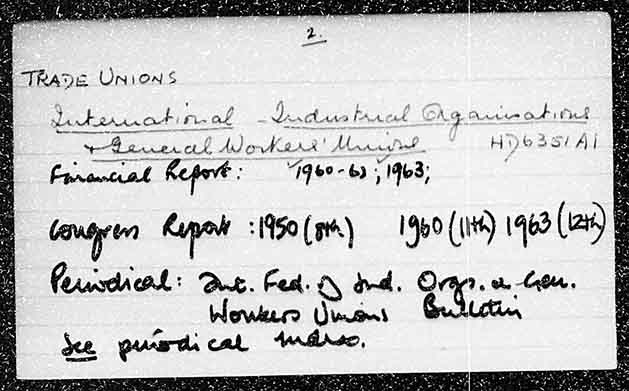 2.
TRADE UNIONS
International - Industrial Organisations
+ General Workers' Unions HD6351 A1
Financial Report: 1960-62; 1963;
Congress Report: 1950 (8th) 1960 (11th) 1963 (12th)
Periodical: Int. Fed. of Ind. Orgs. & Gen.
Workers Unions Bulletin
See periodical index.